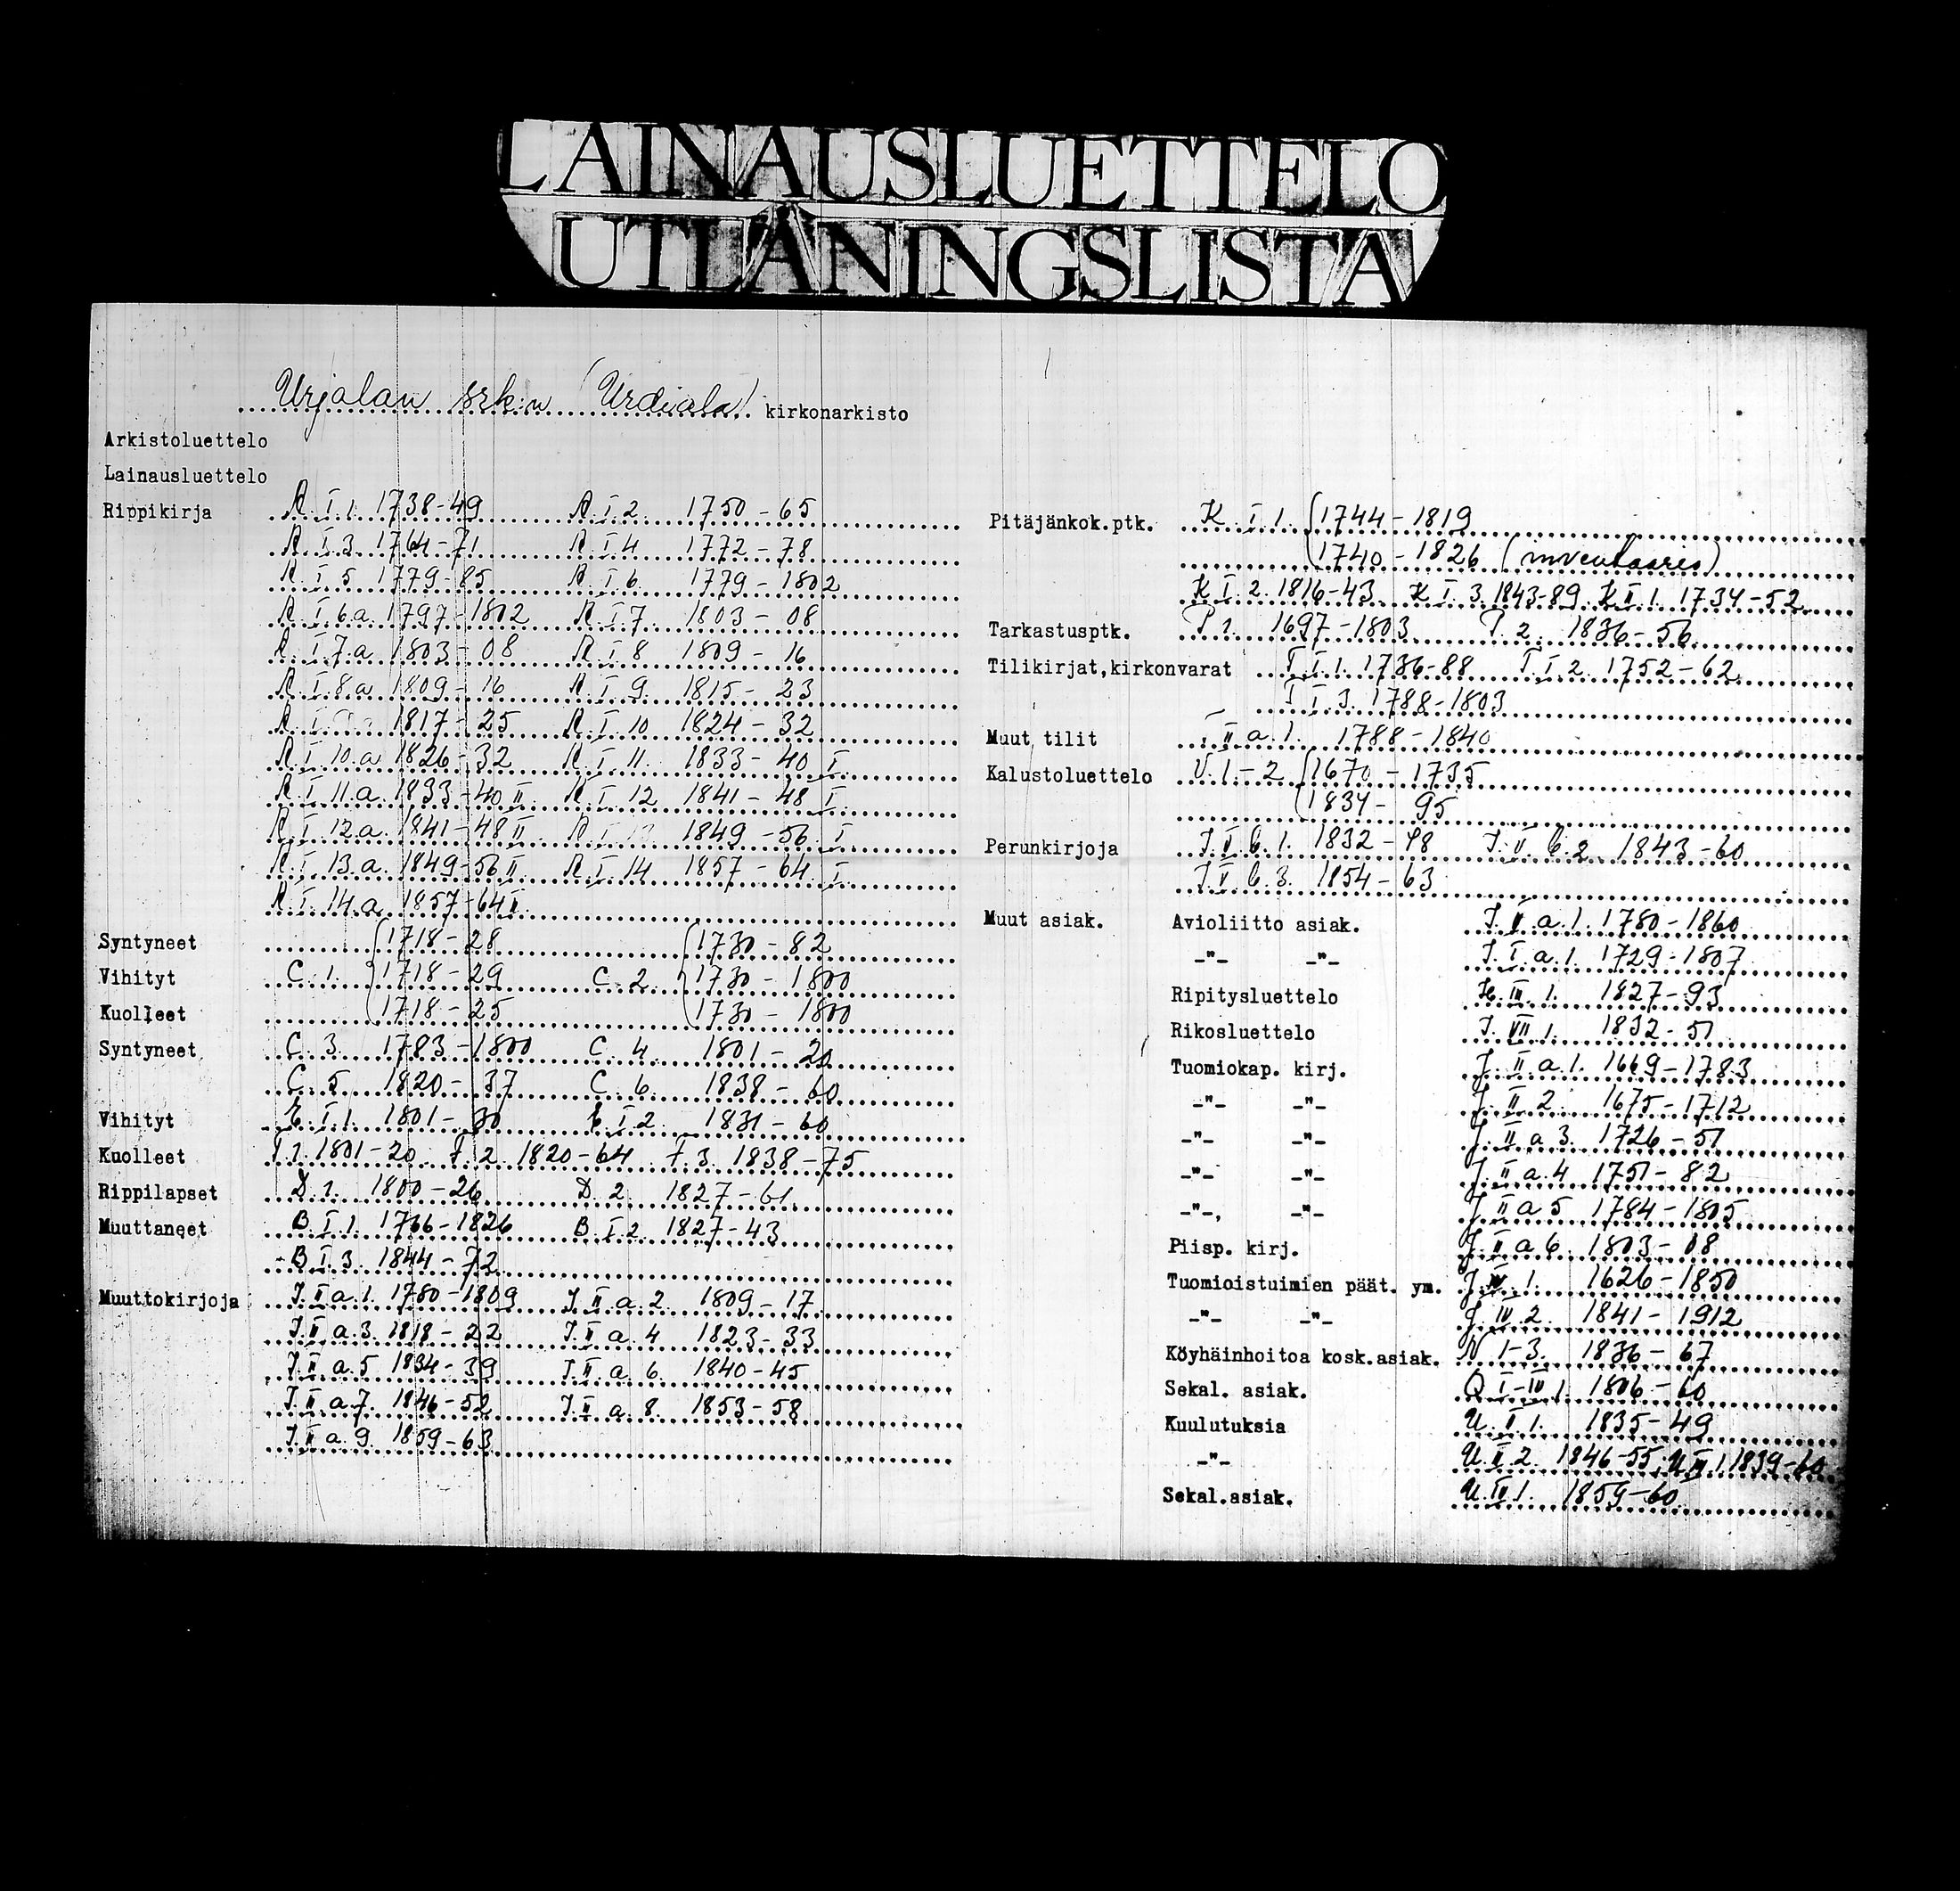 LAINAUSLUETTELO
UTLÅNINGSLISTA
Urjalan srk:n (Urdiala) kirkonarkisto
Arkistoluettelo
Lainausluettelo
Rippikirja A. I. 1. 1738-49 A. I. 2. 1750-65
A. I. 3. 1764-71 A. I. 4 1772-78
A. I. 5. 1779-85 A. I. 6. 1779-1802
A. I. 6.a. 1797-1802 A. I. 7. 1803-08
A. I. 7.a. 1803-08 A. I. 8 1809-16
A. I. 8.a 1809-16 A. I. 9. 1815-23
A. I. 1817-25 A. I. 10 1824-32
A. I. 10.a 1826-32 A. I. 11. 1833-40 I
A. I. 11.a. 1833-40 II A. I. 12 1841-48 I
A. I. 12.a. 1841-48 II A. I. 13 1849-56 I
A. I. 13.a. 1849-56 II A. I. 14 1857-64 I
A. I. 14.a. 1857-64 II
Syntyneet 1718-28 1730-82
Vihityt C. 1. 1718-29 C. 2 1730-1800
Kuolleet 1718-25 1730-1800
Syntyneet C. 3. 1783-1800 C. 4. 1801-20
C. 5 1820-37 C. 6. 1838-60
Vihityt E. I. 1. 1801-30 E. I. 2. 1831-60
Kuolleet F. 1. 1801-20 F. 2. 1820-64 F. 3. 1838-75
Rippilapset D. 1. 1800-26 D. 2. 1827-61
Muuttaneet B. I. 1. 1766-1826 B. I. 2. 1827-43
B. I. 3. 1844-72
Muuttokirjoja J. II a. 1. 1780-1809 J. II a. 2. 1809-17
J. II a. 3. 1818-22 J. II a. 4 1823-33
J. II a. 5 1834-39 J. II a. 6. 1840-45
J. II a. 7. 1846-52 J. II a. 8. 1853-58
J. II a. 9. 1859-63
Pitäjänkok.ptk. K. I. 1. 1744-1819
1740-1826 (inventaario)
K I. 2. 1816-43 K I. 3. 1843-89 K II. 1. 1734-52
Tarkastusptk. P 1. 1697-1803 P. 2. 1836-56
Tilikirjat,kirkonvarat T. I. 1. 1736-88 T. I. 2. 1752-62
T I. 3. 1788-1803
Muut tilit II a. 1. 1788-1840
Kalustoluettelo V. 1-2 1670-1735
1834-95
Perunkirjoja J. V. b. 1. 1832-48 J. V. b. 2. 1843-60
J V. b. 3. 1854-63
Muut asiak. Avioliitto asiak. J. V. a. 1. 1780-1860
-"- -"- J. I. a. 1. 1729-1807
Ripitysluettelo H. III. 1. 1827-93
Rikosluettelo J. VII 1. 1832-51
Tuomiokap. kirj. J. II. a. 1. 1669-1783
-"- -"- J. II 2. 1675-1712
-"- -"- J. II a 3. 1726-51
-"- -"- J. II a. 4 1751-82
-"-, -"- J II a 5 1784-1805
Piisp. kirj. J. II a 6. 1803-08
Tuomioistuimien päät. ym. J IV. 1. 1626-1850
-"- -"- J. IV. 2. 1841-1912
Köyhäinhoitoa kosk.asiak. N 1-3. 1836-67
Sekal. asiak. Q I-IV 1. 1806-60
Kuulutuksia U. II 1. 1835-49
-"- U. II. 2. 1846-55, U III 1. 1839-60
Sekal.asiak. U. IV 1. 1859-60